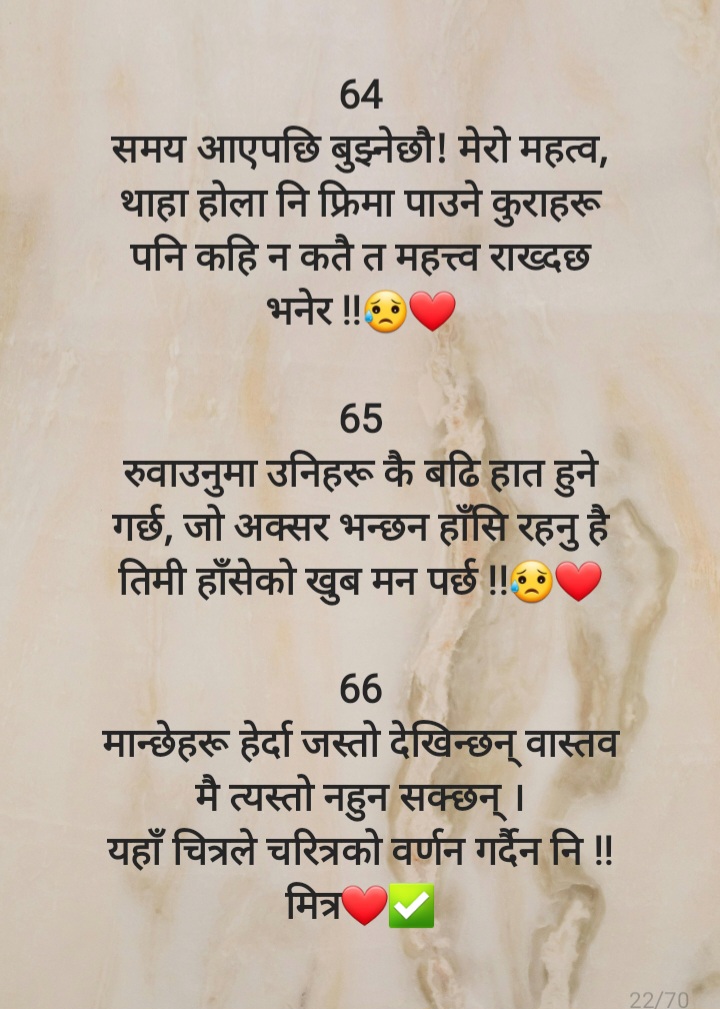 64
समय आएपछि बुझ्नेछौ! मेरो महत्व,
थाहा होला नि फ्रिमा पाउने कुराहरू
पनि कहि न कतै त महत्त्व राख्दछ
भनेर !!😥❤️
65
रुवाउनुमा उनिहरू कै बढि हात हुने
गर्छ, जो अक्सर भन्छन हाँसि रहनु है
तिमी हाँसेको खुब मन पर्छ !!😥❤️
66
मान्छेहरू हेर्दा जस्तो देखिन्छन् वास्तव
मै त्यस्तो नहुन सक्छन् ।
यहाँ चित्रले चरित्रको वर्णन गर्दैन नि !!
मित्र❤️✅
22/70